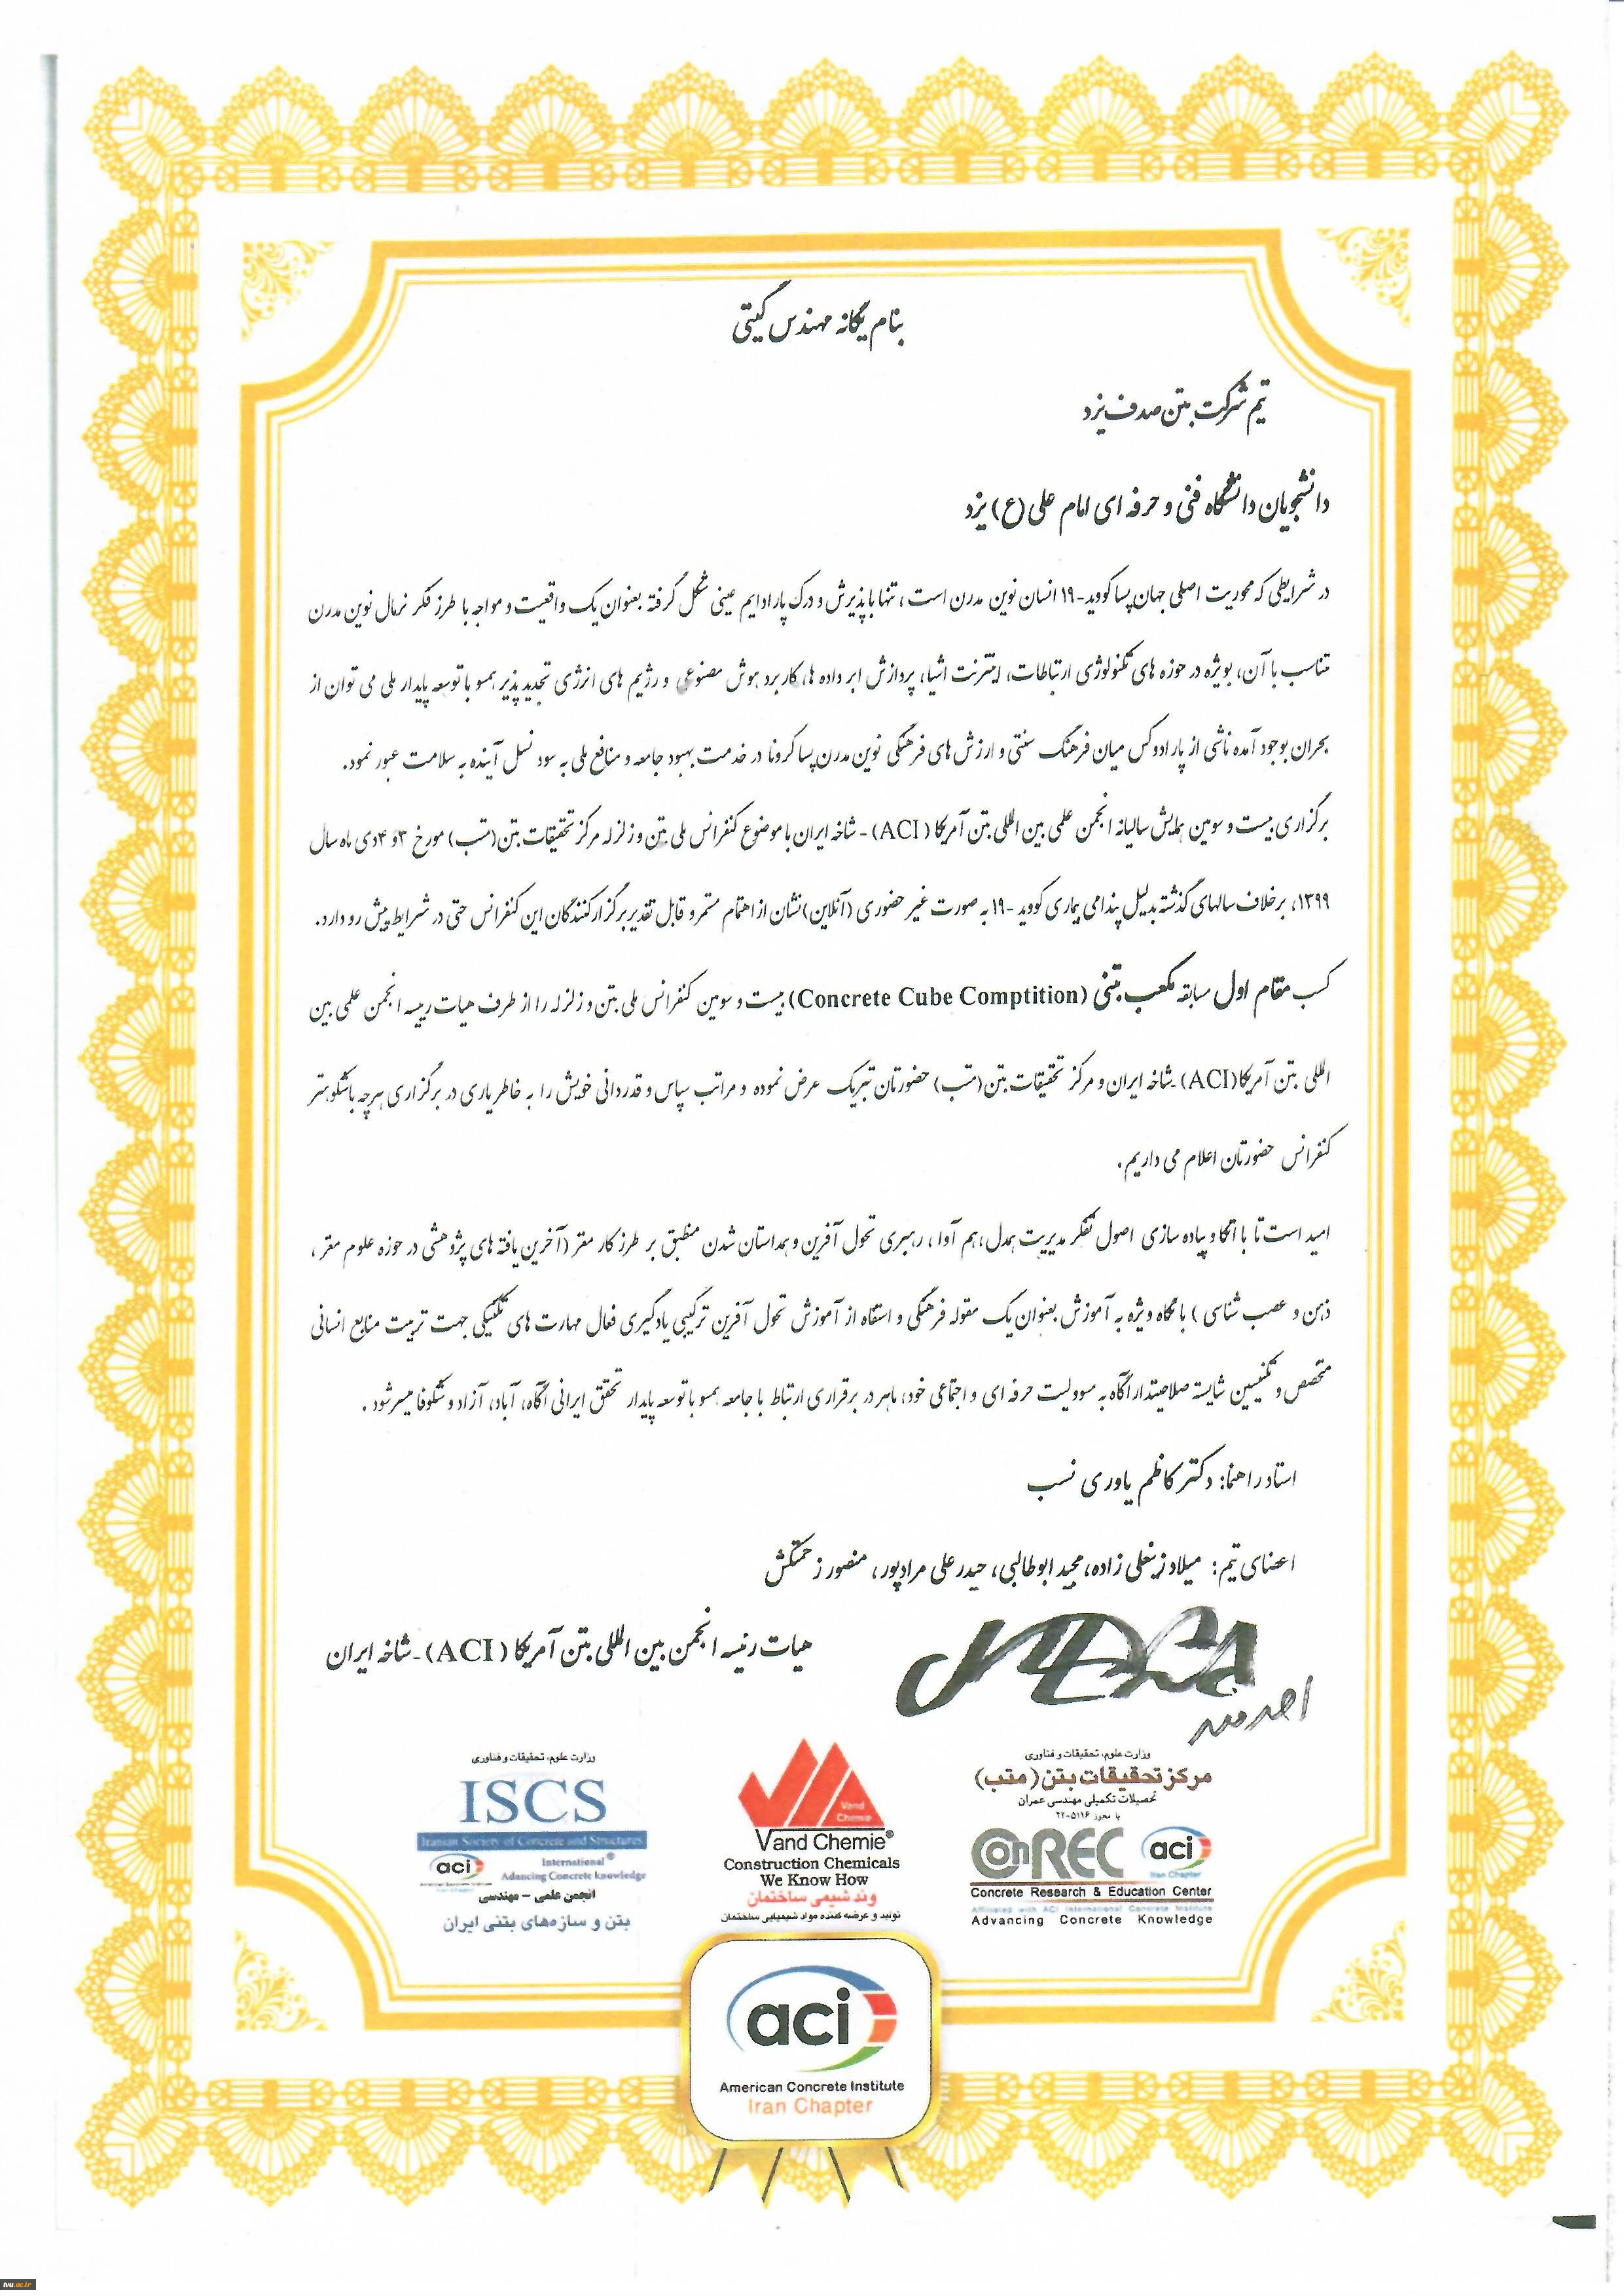 بنام یگانه مهندس گیتی
تیم شرکت بتن صدف یزد
دانشجویان دانشگاه فنی و حرفه ای امام علی (ع) یزد
در شرایطی که محوریت اصلی جهان پسا کووید-۱۹ انسان نوین مدرن است، تنها با پذیرش و درک پارادایم عینی شکل گرفته بعنوان یک واقعیت و مواجه با طرز فکر نرمال نوین مدرن
متناسب با آن، بویژه در حوزه های تکنولوژی ارتباطات، اینترنت اشیا، پردازش ابر داده ها، کاربرد هوش مصنوعی و رژیم های انرژی تجدید پذیر همسو با توسعه پایدار ملی می توان از
بحران بوجود آمده ناشی از پارادوکس میان فرهنگ سنتی و ارزش های فرهنگی نوین مدرن پسا کرونا در خدمت بهبود جامعه و منافع ملی به سود نسل آینده به سلامت عبور نمود.
برگزاری بیست و سومین همایش سالیانه انجمن علمی بین المللی بتن آمریکا (ACI) - شاخه ایران با موضوع کنفرانس ملی بتن و زلزله مرکز تحقیقات بتن (متب) مورخ ۳ و ۴ دی ماه سال
۱۳۹۹، برخلاف سالهای گذشته بدلیل پندامی بیماری کووید -۱۹ به صورت غیر حضوری (آنلاین) نشان از اهتمام مستمر و قابل تقدیر برگزارکنندگان این کنفرانس حتی در شرایط پیش رو دارد.
کسب مقام اول مسابقه مکعب بتنی (Concrete Cube Comptition) بیست و سومین کنفرانس ملی بتن و زلزله را از طرف هیات رییسه انجمن علمی بین
المللی بتن آمریکا (ACI) -شاخه ایران و مرکز تحقیقات بتن (متب) حضورتان تبریک عرض نموده و مراتب سپاس و قدردانی خویش را به خاطر یاری در برگزاری هرچه باشکوهتر
کنفرانس حضورتان اعلام می داریم.
امید است تا با اتکا و پیاده سازی اصول تفکر مدیریت همدل، هم آوا، رهبری تحول آفرین و همداستان شدن منطبق بر طرز کار مغز (آخرین یافته های پژوهشی در حوزه علوم مغز،
ذهن و عصب شناسی) با نگاه ویژه به آموزش بعنوان یک مقوله فرهنگی و استفاه از آموزش تحول آفرین ترکیبی یادگیری فعال مهارت های تکنیکی جهت تربیت منابع انسانی
متخصص و تکنیسین شایسته صلاحیتدار آگاه به مسوولیت حرفه ای و اجتماعی خود، ماهر در برقراری ارتباط با جامعه همسو با توسعه پایدار تحقق ایرانی آگاه، آباد، آزاد و شکوفا میسر شود.
استاد راهنما: دکتر کاظم یاوری نسب
اعضای تیم: میلاد زینعلی زاده، مجید ابوطالبی، حیدر علی مرادپور، منصور زحمتکش
هیات رئیسه انجمن بین المللی بتن آمریکا (ACI) - شاخه ایران
وزارت علوم، تحقیقات و فناوری
مرکز تحقیقات بتن (متب)
تحصیلات تکمیلی مهندسی عمران
با مجوز ۵۱۱۶-۲۲
ConREC
aci
Iran Chapter
Concrete Research & Education Center
Affiliated with ACI International Concrete Institute
Advancing Concrete Knowledge
Vand Chemie
Vand Chemie®
Construction Chemicals
We Know How
وند شیمی ساختمان
تولید و عرضه کننده مواد شیمیایی ساختمان
وزارت علوم، تحقیقات و فناوری
ISCS
Iranian Society of Concrete and Structures
aci
International®
Adancing Concrete knowledge
انجمن علمی - مهندسی
بتن و سازه‌های بتنی ایران
aci
American Concrete Institute
Iran Chapter
tvu.ac.ir